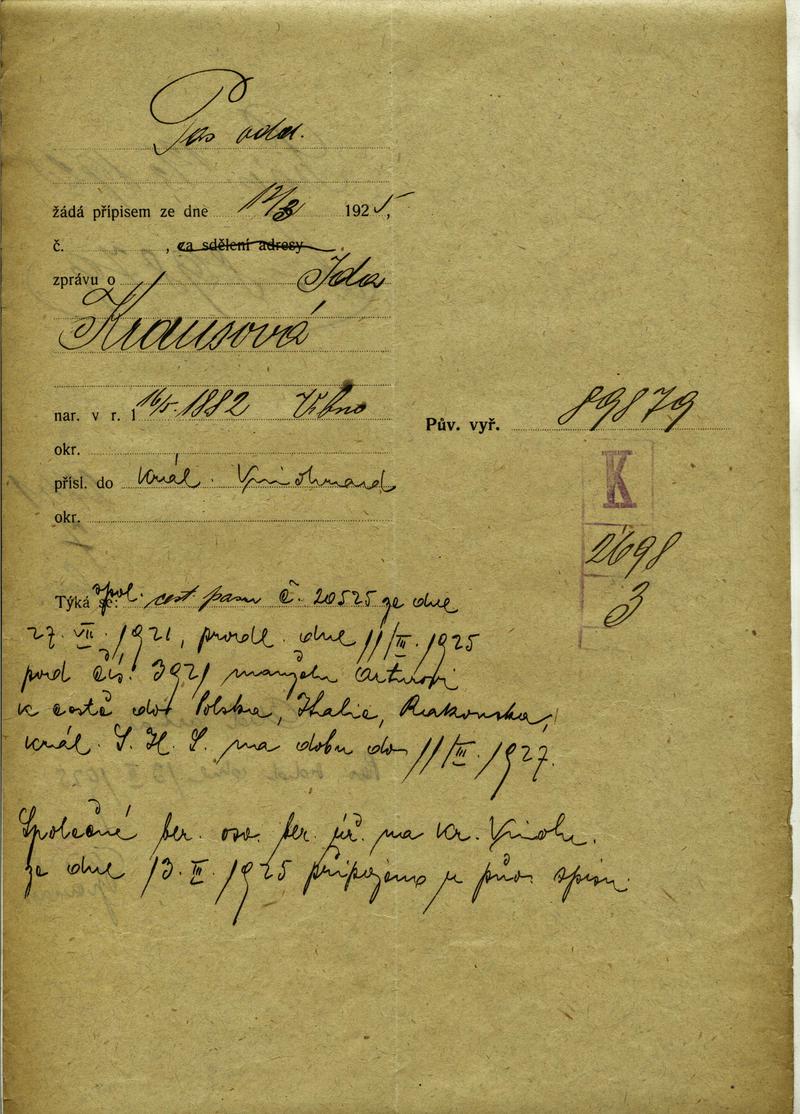 Pas odd.
žádá přípisem ze dne 12/3 1925,
č. , za sdělení adresy
zprávu o Ida
Krausová
nar. v r. 1 16/5. 1882
Pův. vyř. 89879
okr.
K
přísl. do Král. Vinohrad
okr.
2698
3
Týká se: spol. cest. pasu č. 20525 ze dne
27. VII. 1921, prodl. dne 11/III. 1925
pod čís. 3921 manželu Arturovi
k cestě do Polska, Italie, Rakouska,
král. S. H. S. na dobu do 11/III. 1927.
Společné ber. osv. ber. úř. na Kr. Vinohr.
ze dne 13. II. 1925 připojeno u pův. spisu.